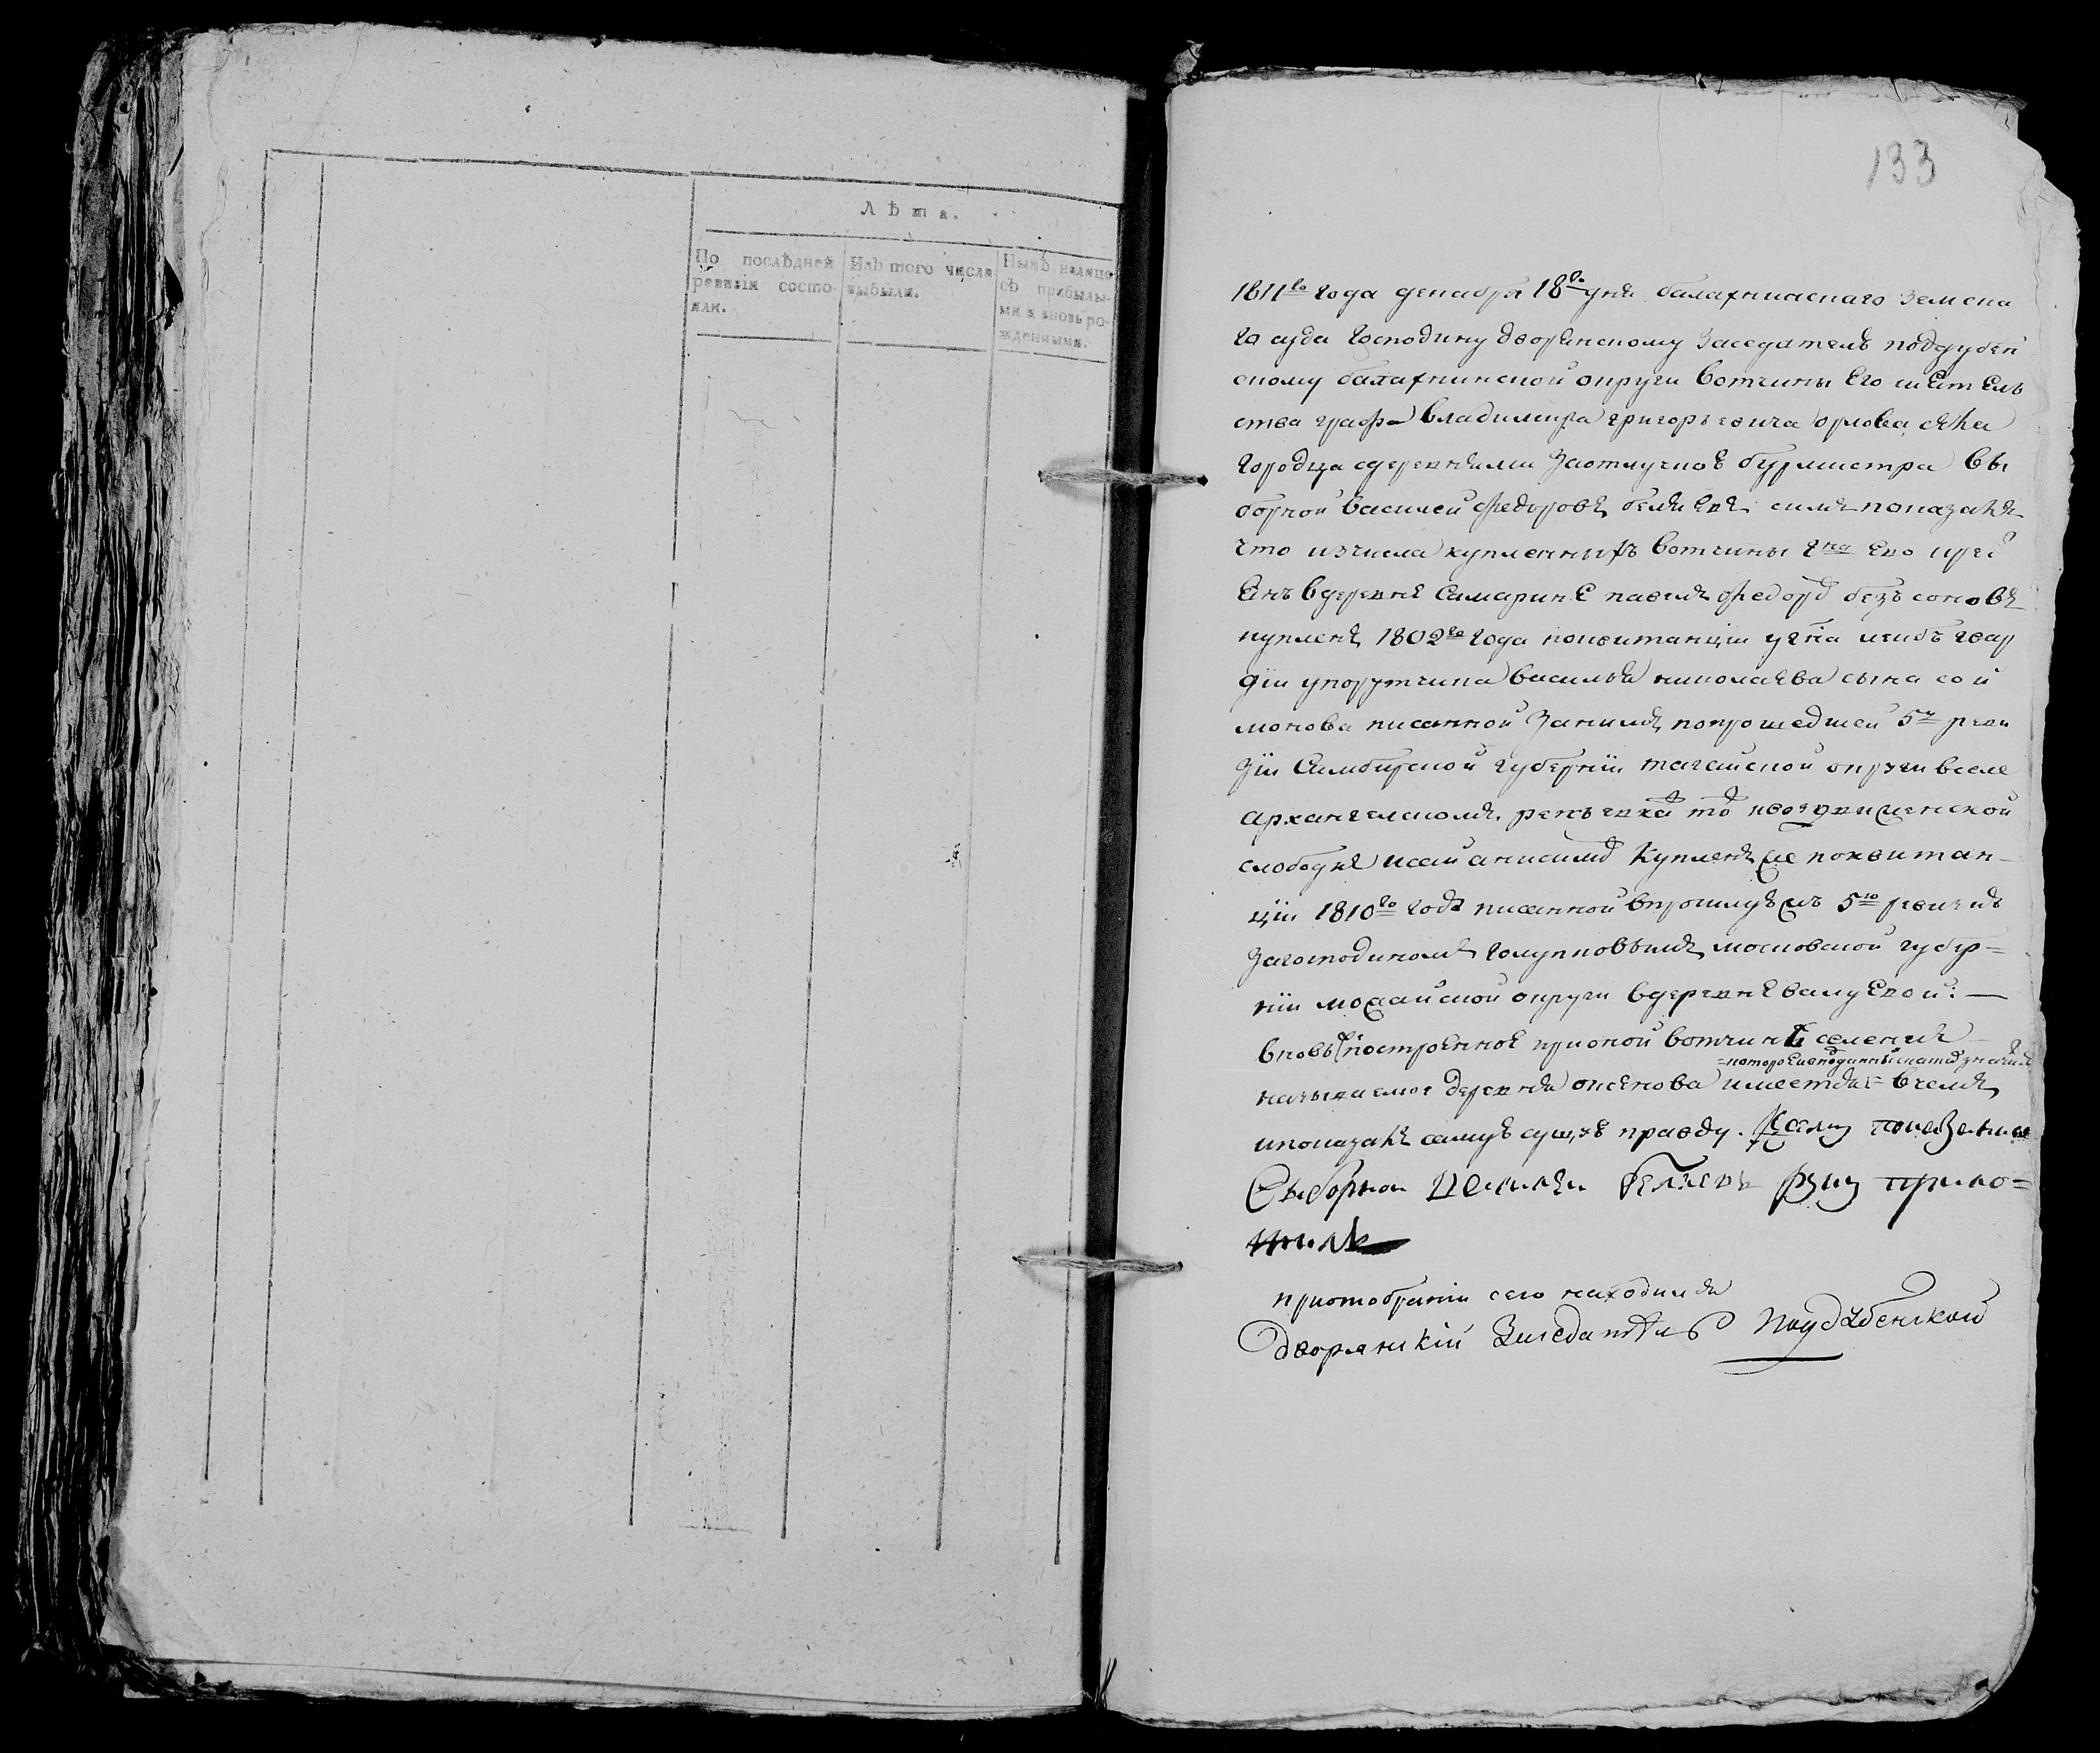 Лѣта.
По послѣдней ревизіи состояли.
Изъ того числа выбыли.
Нынѣ налицо съ прибылыми и вновь рожденными.
133
1811го года декабря 18го дня балахнинскаго земска
го суда господину дворянскому заседателю поддубен
скому балахнинской округи вотчины Его сиятель
ства графа владимира григорьевича орлова села
городца здеревнями заотлучкою бурмистра вы
борной василей федоровъ беляевъ симъ показалъ
что изчисла купленныхъ вотчины
вдеревне Самарине павелъ федоров безъ сыновъ
купленъ 1802го года поквитанции лейбъ гвар
дии упорутчика василья николаева сына сой
монова писанной занимъ попрошедшей 5й реви
зіи Симбирской губерніи тагайской округи вселе
архангелскомъ, репьевка то
слободке исай анисимов купленъ же поквитан-
ціи 1810го года писанной впрошлую жъ 5ю ревизию
загосподиномъ голупповымъ, московской губер=
ніи можайской округи вдеревне валуевой: —
вновь построенное прионой вотчинѣ селения
называемое деревня аксенова имеетца= вчемъ
ипоказалъ самую сущую правду. Ксему показанию
выборной Василей беляевъ руку прило=
жилъ
приотобрании сего находился
дворянскій Заседатель Поддубенской